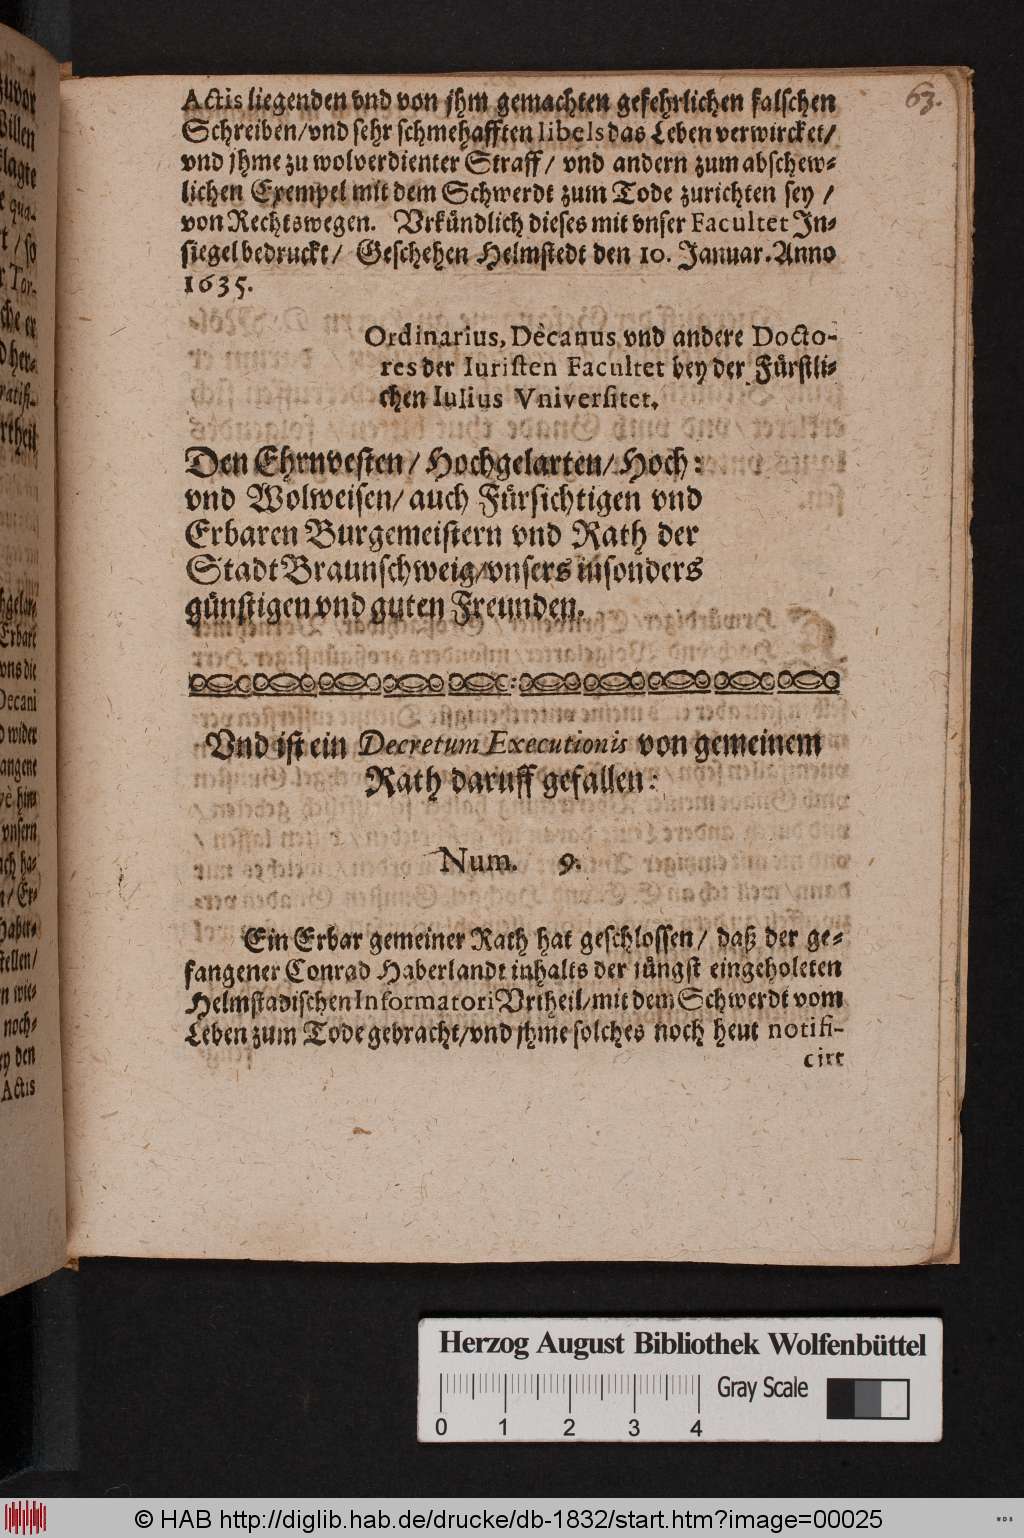 63.
Actis liegenden vnd von jhm gemachten gefehrlichen falschen
Schreiben/vnd sehr schmehafften libels das Leben verwircket/
vnd jhme zu wolverdienter Straff/ vnd andern zum abschew-
lichen Exempel mit dem Schwerdt zum Tode zurichten sey /
von Rechtswegen. Vrkündlich dieses mit vnser Facultet In-
siegel bedruckt/ Geschehen Helmstedt den 10. Januar. Anno
1635.
Ordinarius, Dècanus vnd andere Docto-
res der Iuristen Facultet bey der Fürstli-
chen Iulius Vniversitet.
Den Ehrnvesten/ Hochgelarten/ Hoch:
vnd Wolweisen/ auch Fürsichtigen vnd
Erbaren Burgemeistern vnd Rath der
Stadt Braunschweig/vnsers insonders
günstigen vnd guten Freunden.
Vnd ist ein Decretum Executionis von gemeinem
Rath daruff gefallen:
Num. 9.
Ein Erbar gemeiner Rath hat geschlossen/ daß der ge-
fangener Conrad Haberlandt inhalts der jüngst eingeholeten
Helmstadischen Informatori Vrtheil/mit dem Schwerdt vom
Leben zum Tode gebracht/vnd jhme solches noch heut notifi-
cirt
Herzog August Bibliothek Wolfenbüttel
Gray Scale
0 1 2 3 4
© HAB http://diglib.hab.de/drucke/db-1832/start.htm?image=00025